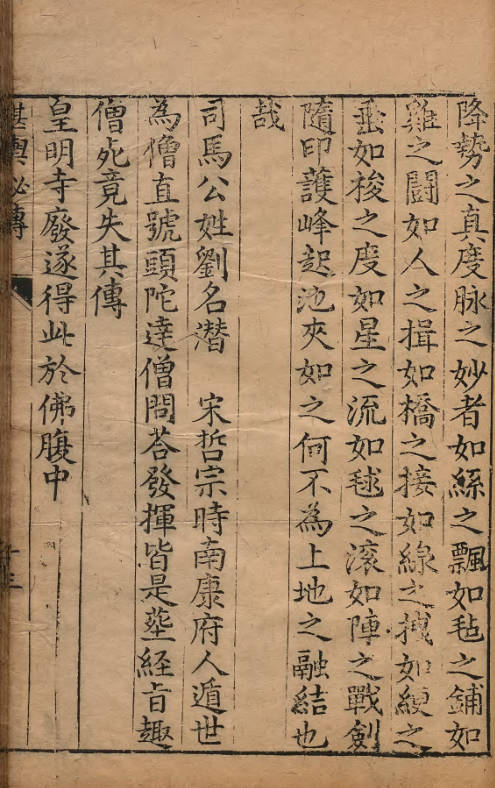 降勢之真度脉之妙者如絲之飄如毡之鋪如
雞之鬪如人之揖如橋之接如線之拽如綆之
垂如梭之度如星之流如毬之滚如陣之戰劍
隨印護峰起池夾如之何不為上地之融結也
哉
司馬公姓劉名潜 宋哲宗時南康府人遁世
為僧直號頭陀達僧問荅發揮皆是塟經旨趣
僧死竟失其傳
皇明寺廢遂得此於佛腹中
堪輿秘傳 十三